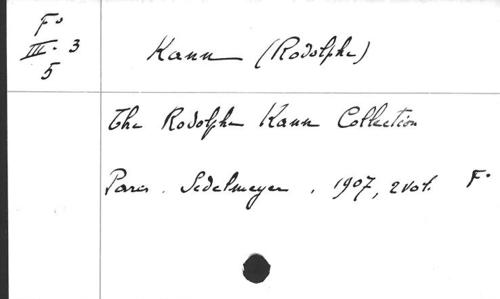 F°
III. 3
5
Kann (Rodolphe)
The Rodolphe Kann Collection
Paris. Sedelmeyer. 1907, 2 vol. F°